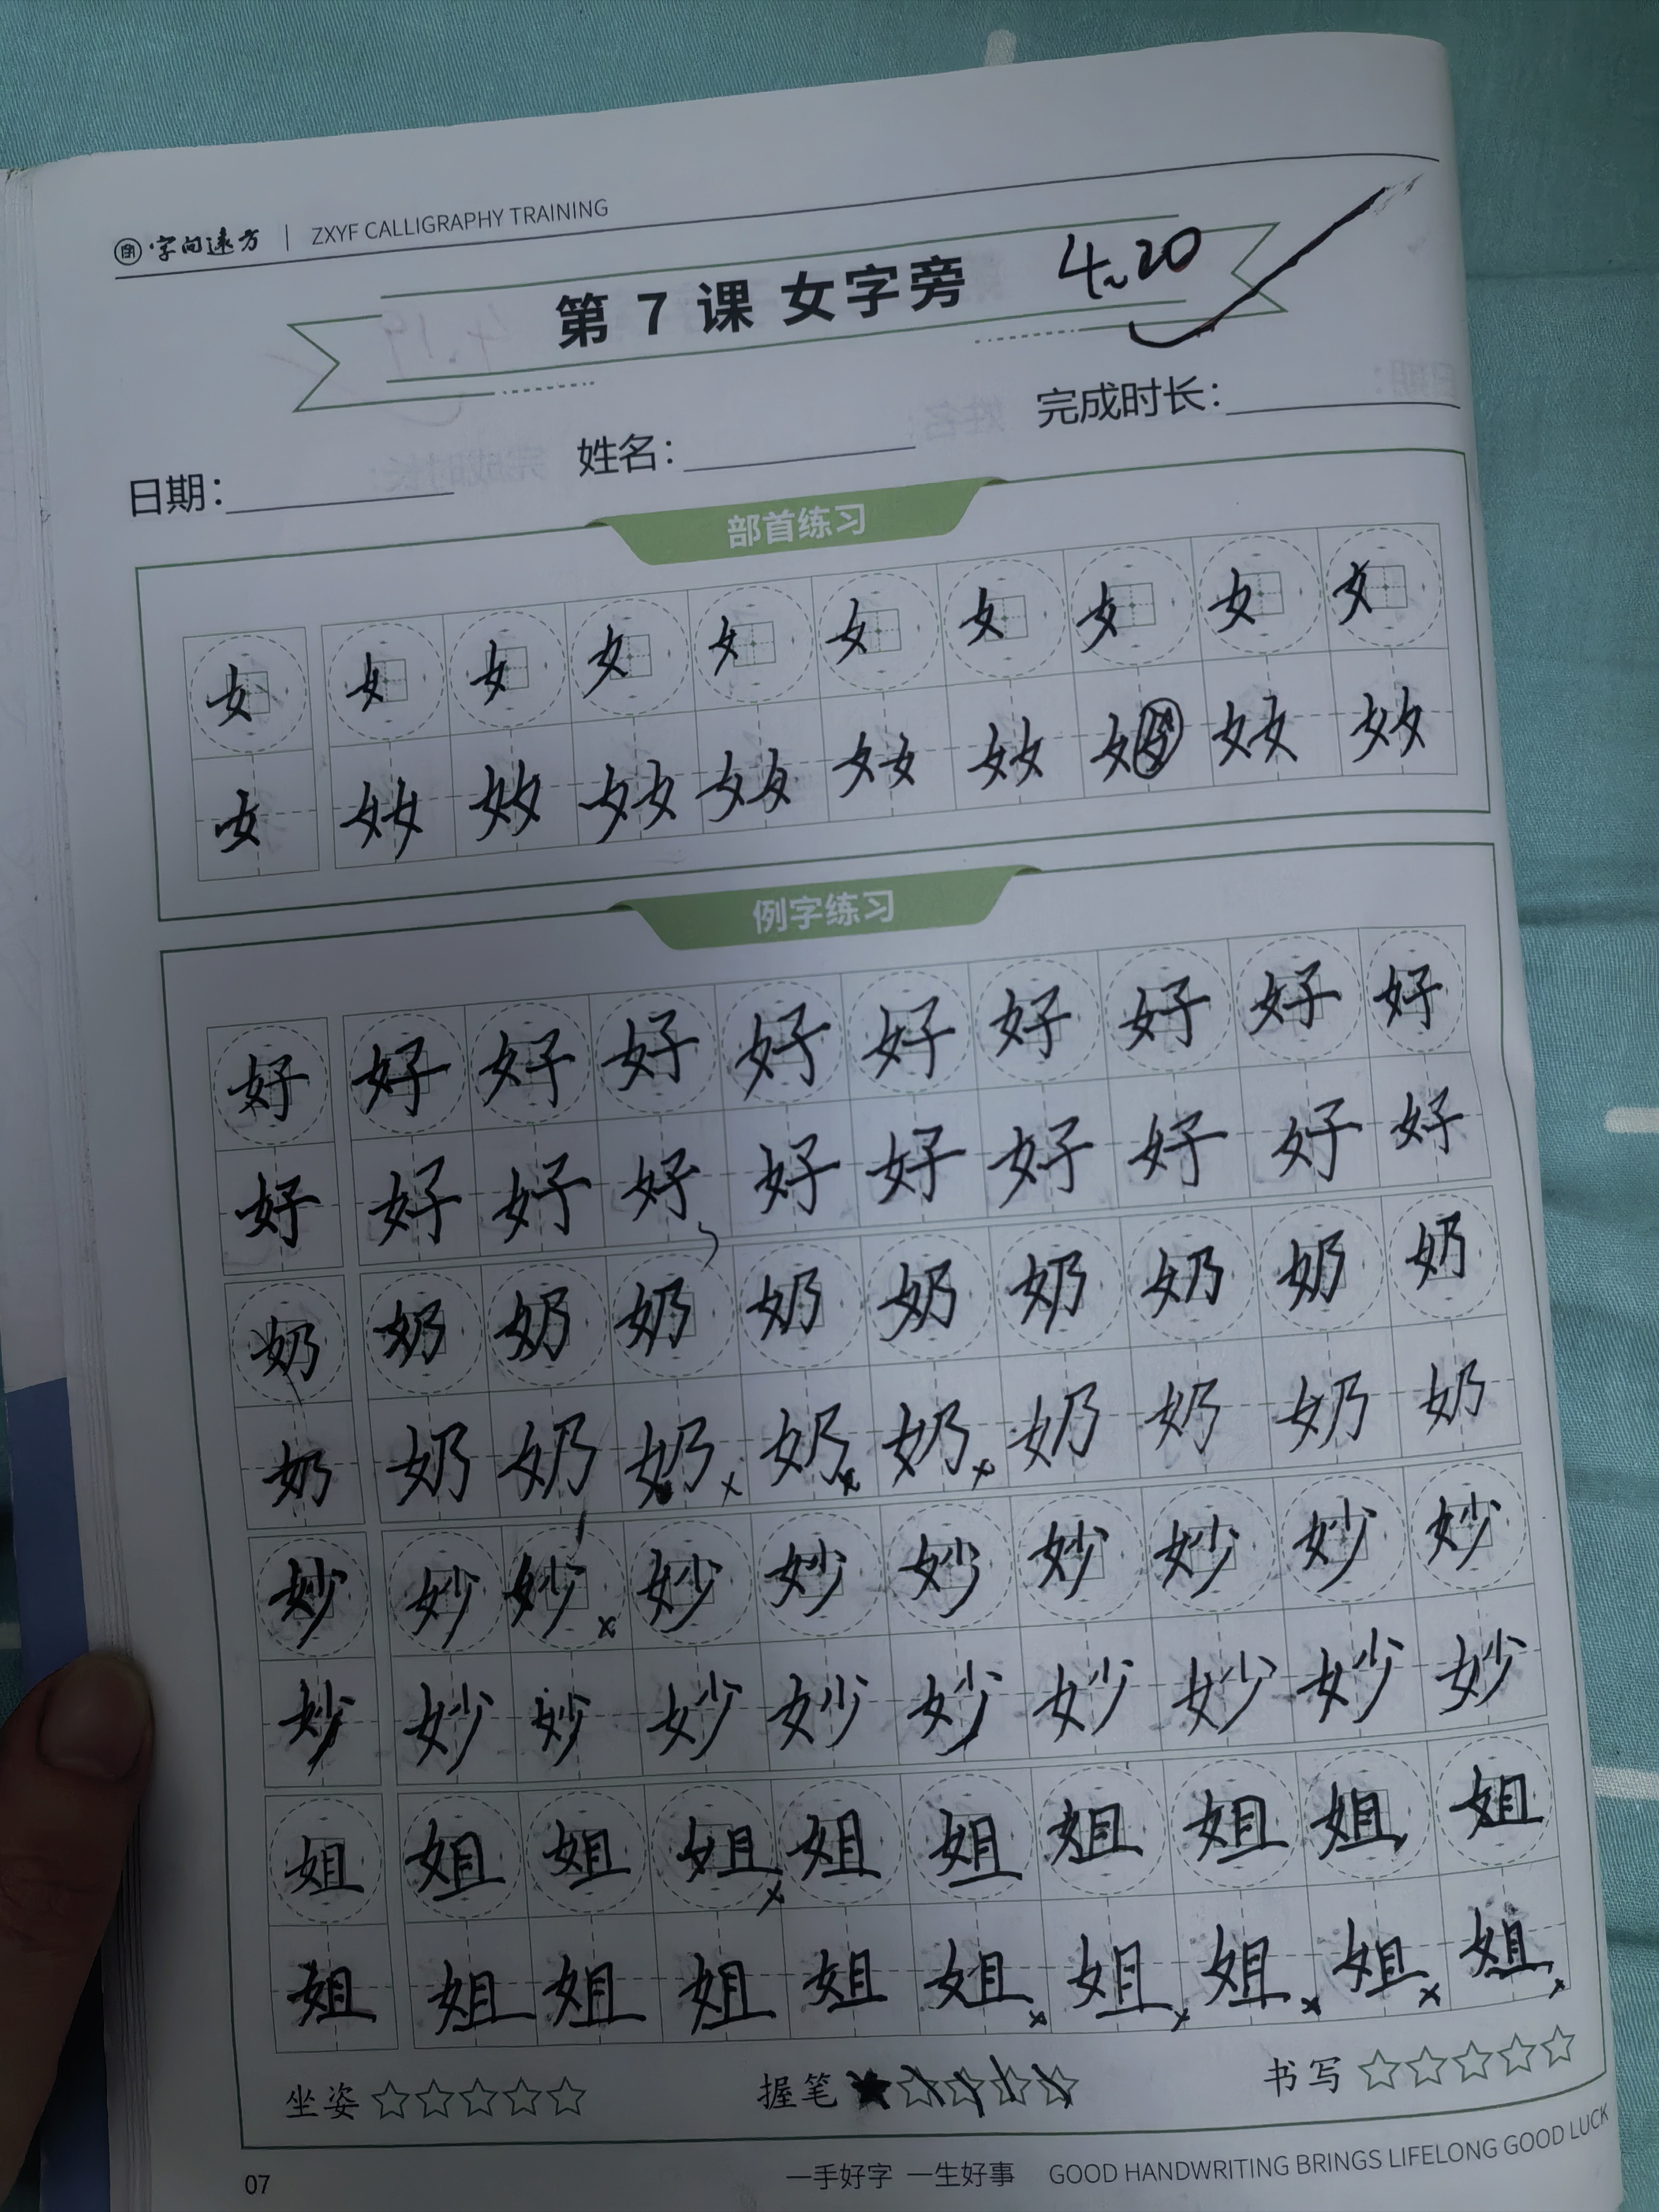 字向远方 | ZXYF CALLIGRAPHY TRAINING
第 7 课 女字旁 4.20
日期： 姓名： 完成时长：
部首练习
女 女 女 女 女 女 女 女 女 女
女 女女 女女 女女 女女 女女 女女 女 女女 女女
例字练习
好 好 好 好 好 好 好 好 好 好
好 好 好 好 好 好 好 好 好 好
奶 奶 奶 奶 奶 奶 奶 奶 奶 奶
奶 奶 奶 奶 奶 奶 奶 奶 奶 奶
妙 妙 妙 妙 妙 妙 妙 妙 妙 妙
妙 妙 妙 妙 妙 妙 妙 妙 妙 妙
姐 姐 姐 姐 姐 姐 姐 姐 姐 姐
姐 姐 姐 姐 姐 姐 姐 姐 姐 姐
坐姿 ☆☆☆☆☆ 握笔 ★☆☆☆☆ 书写 ☆☆☆☆☆
07 一手好字 一生好事 GOOD HANDWRITING BRINGS LIFELONG GOOD LUCK